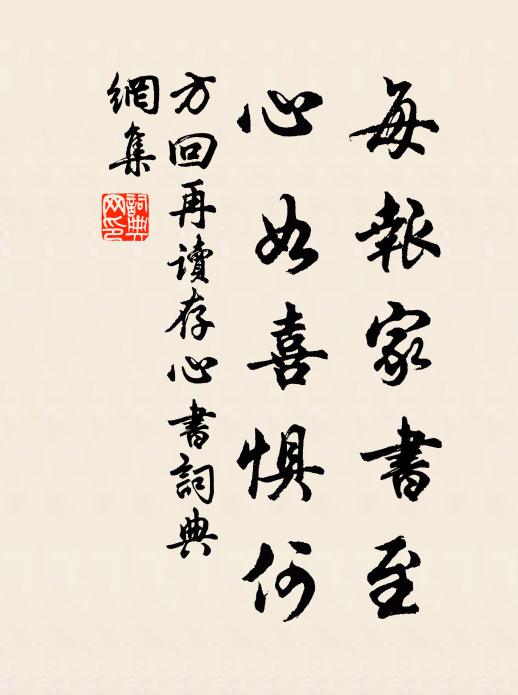 每報家書至
心如喜懼何
方回再讀存心書詞典
網集
詞典
网印